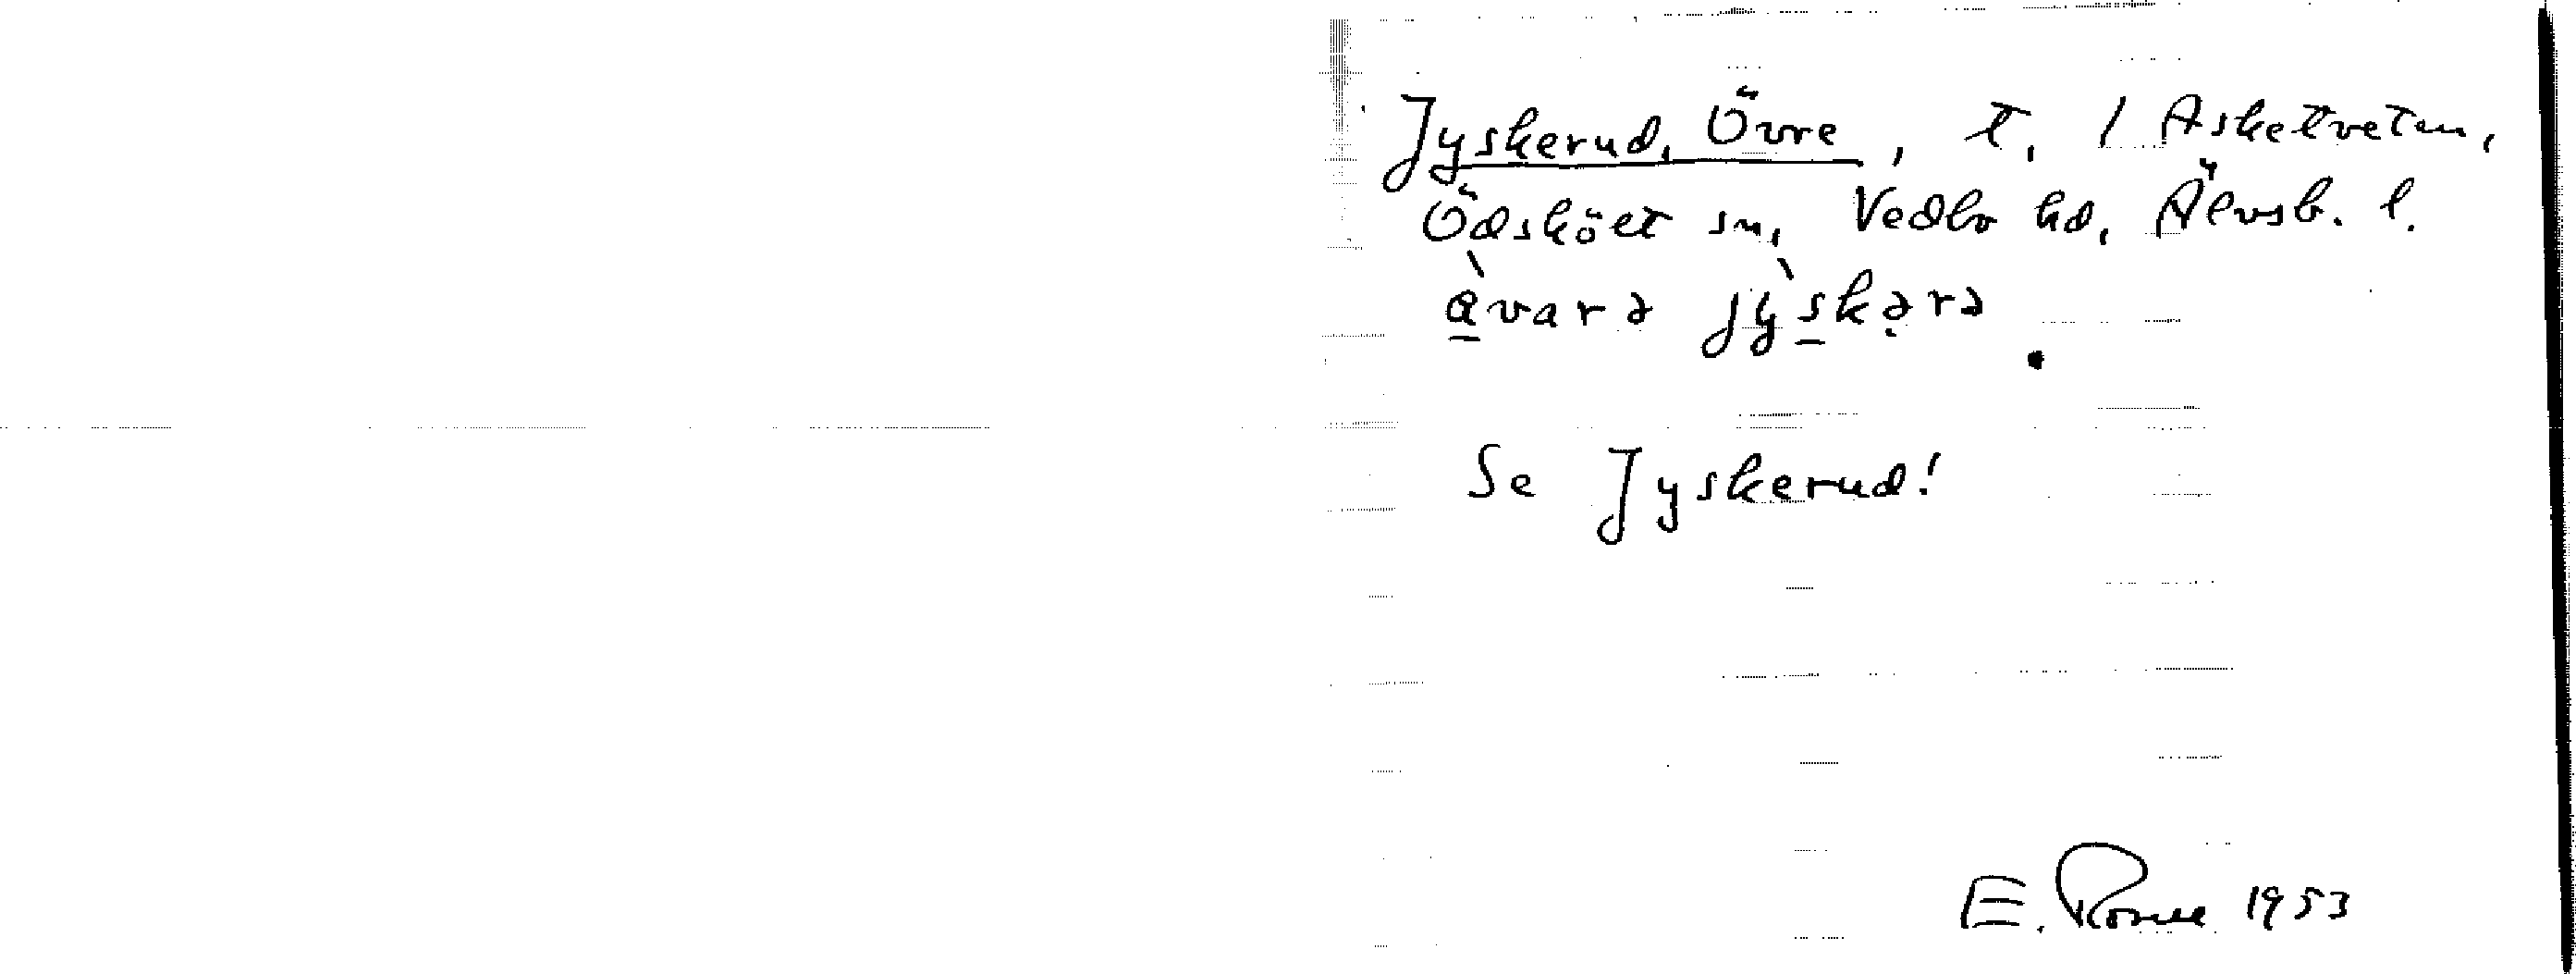 Jyskerud, Övre, t. / Asketveten,
Ödskölt sn, Vedbo hd, Älvsb. l.
àvarə jỳskərə
Se Jyskerud!
E. 1953